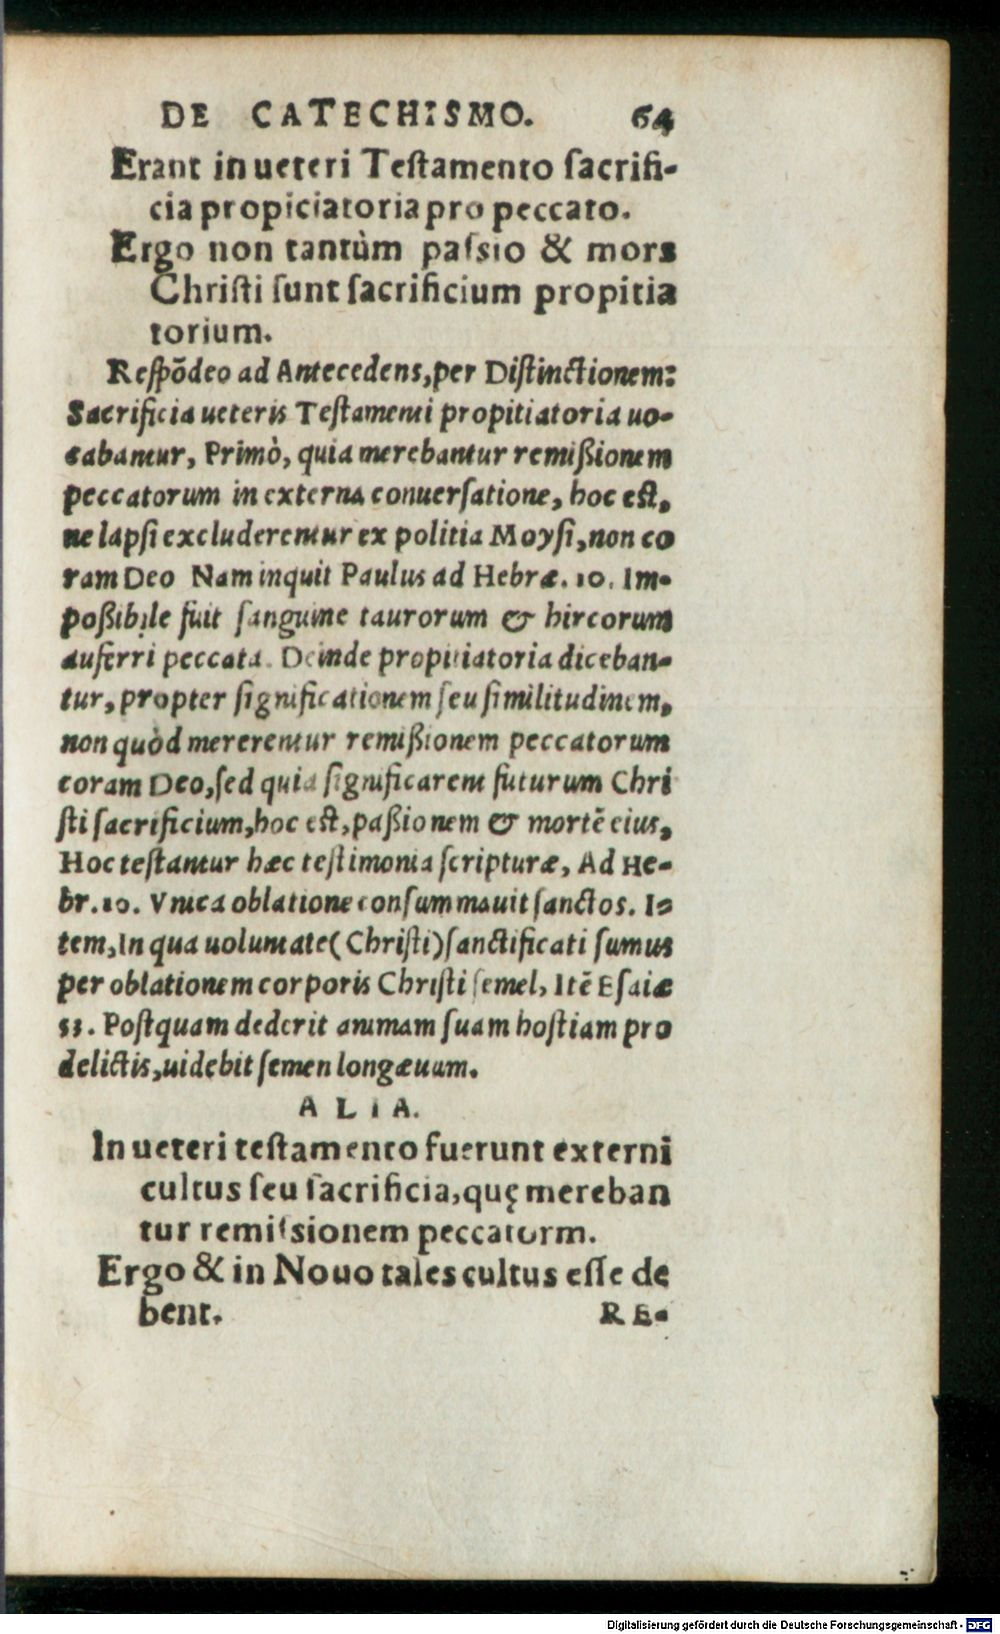 DE CATECHISMO. 64
Erant in ueteri Testamento sacrifi-
cia propiciatoria pro peccato.
Ergo non tantùm passio & mors
Christi sunt sacrificium propitia
torium.
Respōdeo ad Antecedens, per Distinctionem:
Sacrificia ueteris Testamenti propitiatoria uo-
cabantur, Primò, quia merebantur remißionem
peccatorum in externa conuersatione, hoc est,
ne lapsi excluderentur ex politia Moysi, non co
ram Deo Nam inquit Paulus ad Hebræ. 10. Im-
poßibile fuit sanguine taurorum & hircorum
auferri peccata. Deinde propitiatoria diceban-
tur, propter significationem seu similitudinem,
non quòd mererentur remißionem peccatorum
coram Deo, sed quia significarent futurum Chri
sti sacrificium, hoc est, paßionem & mortē eius,
Hoc testantur hæc testimonia scripturæ, Ad He-
br. 10. Vnica oblatione consummauit sanctos. I-
tem, In qua uoluntate (Christi) sanctificati sumus
per oblationem corporis Christi semel, Itē Esaiæ
53. Postquam dederit animam suam hostiam pro
delictis, uidebit semen longæuum.
ALIA.
In ueteri testamento fuerunt externi
cultus seu sacrificia, quę mereban
tur remissionem peccatorm.
Ergo & in Nouo tales cultus esse de
bent. RE-
Digitalisierung gefördert durch die Deutsche Forschungsgemeinschaft - DFG